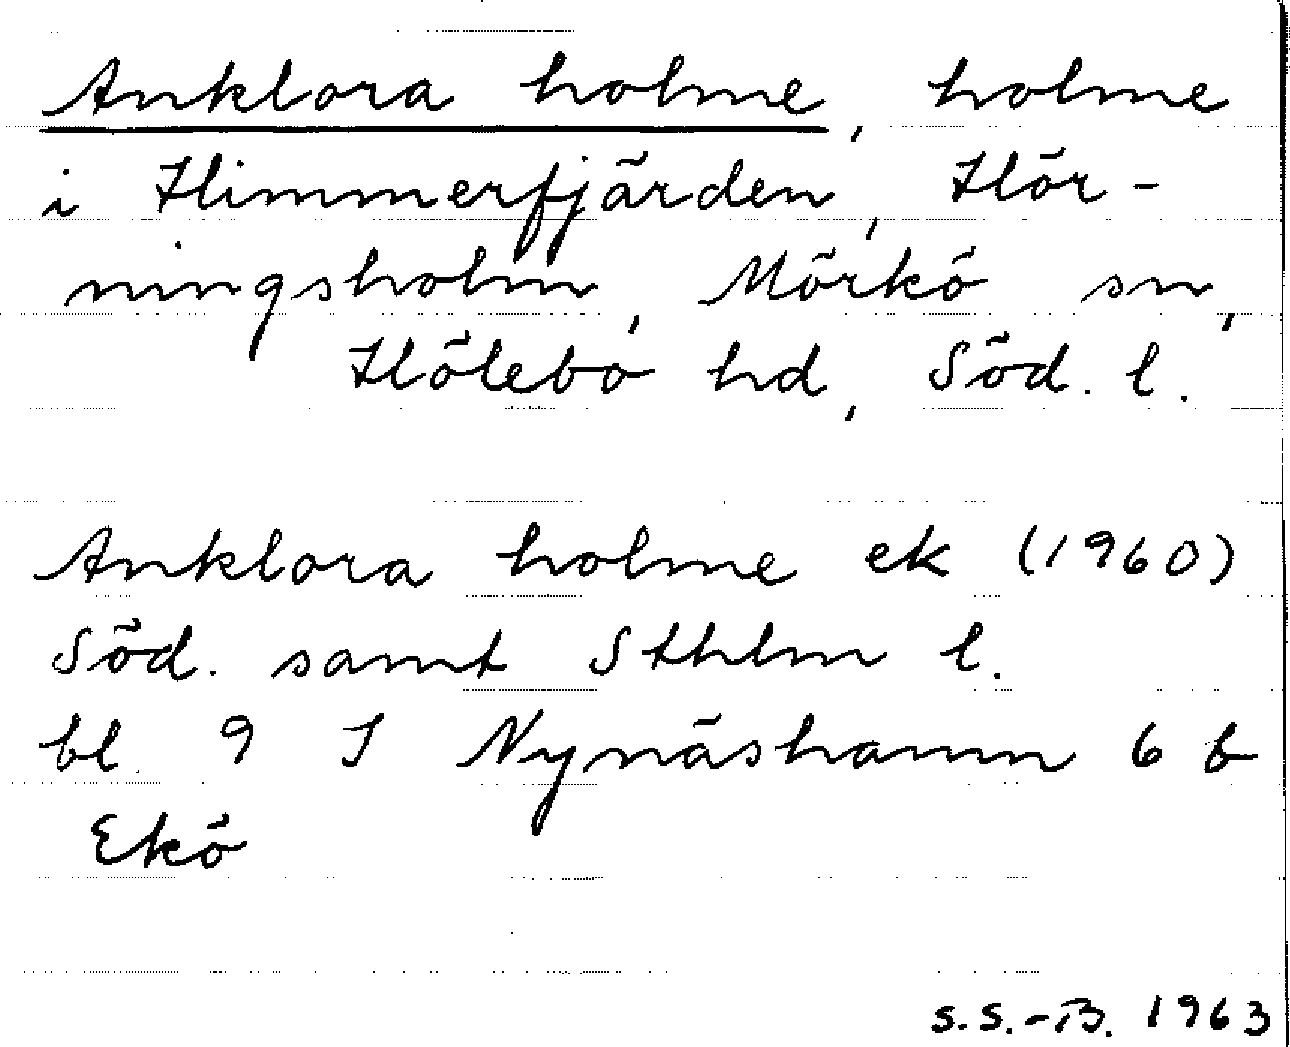 Anklora holme, holme
i Himmerfjärden, Hör-
ningsholm, Mörkö sn,
Hölebo hd, Söd. l.
Anklora holme ek (1960)
Söd. samt Sthlm l.
bl 9 I Nynäshamn 6 b
Ekö
S.S.-B. 1963